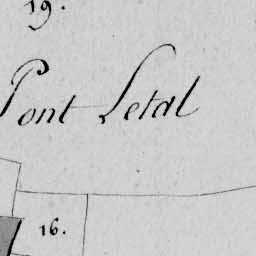 19.
Pont Letal
16.